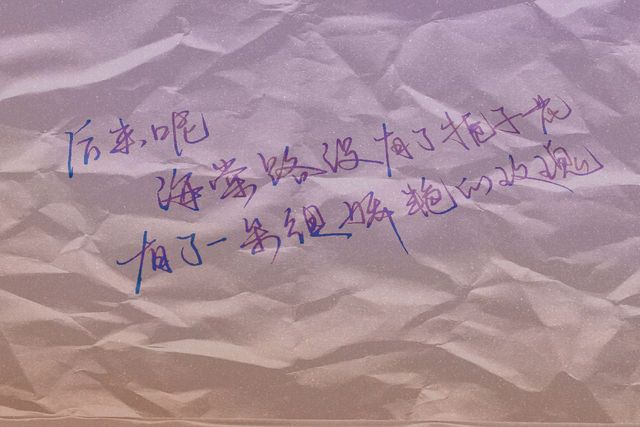 后来呢
海棠路没有了栀子花
有了一朵娇艳的玫瑰